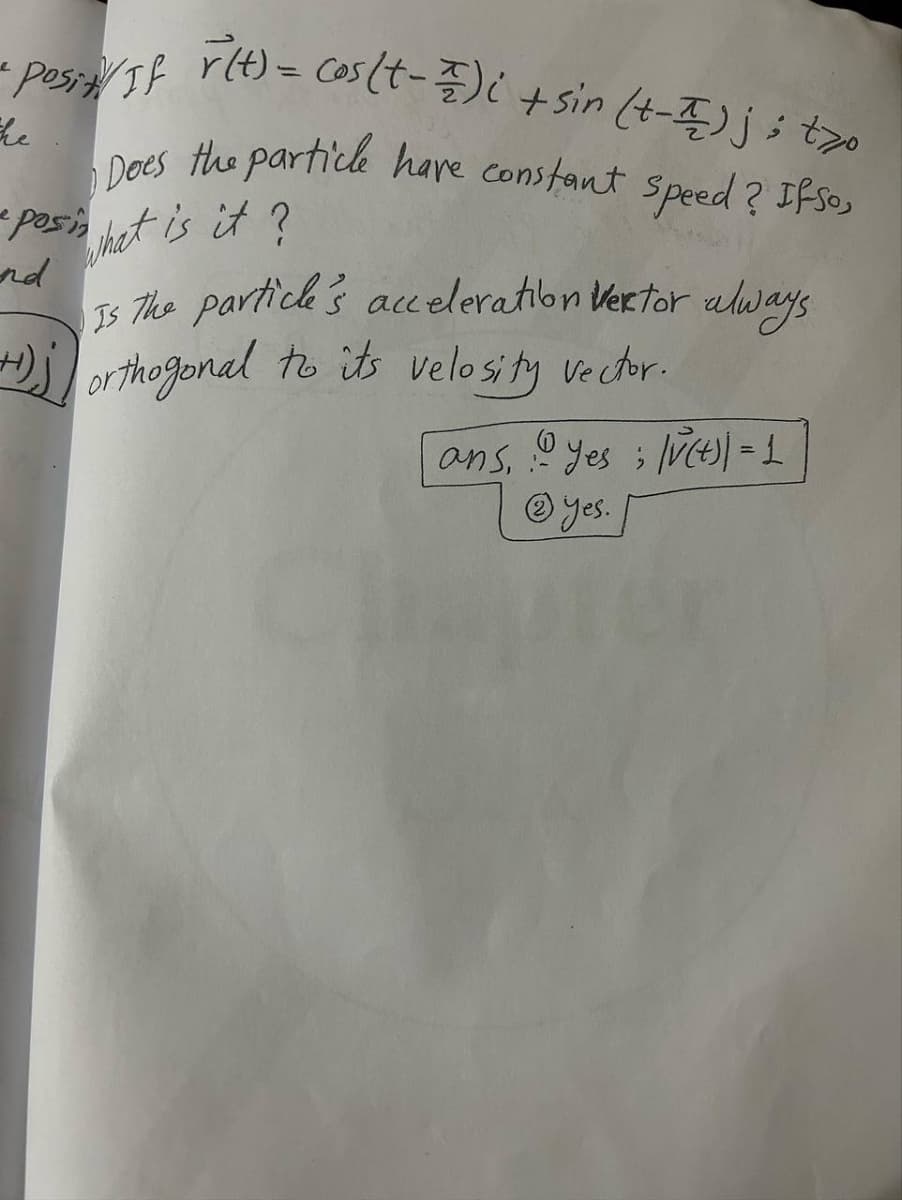 posit If r⃗(t) = Cos(t-π/2)i + sin (t-π/2)j ; t≥0
he
Does the particle have constant speed? If so,
posi what is it ?
nd
Is the particle's acceleration Vector always
t)j orthogonal to its velosity vector.
ans, :- ① yes ; |v⃗(t)| = 1
② yes.